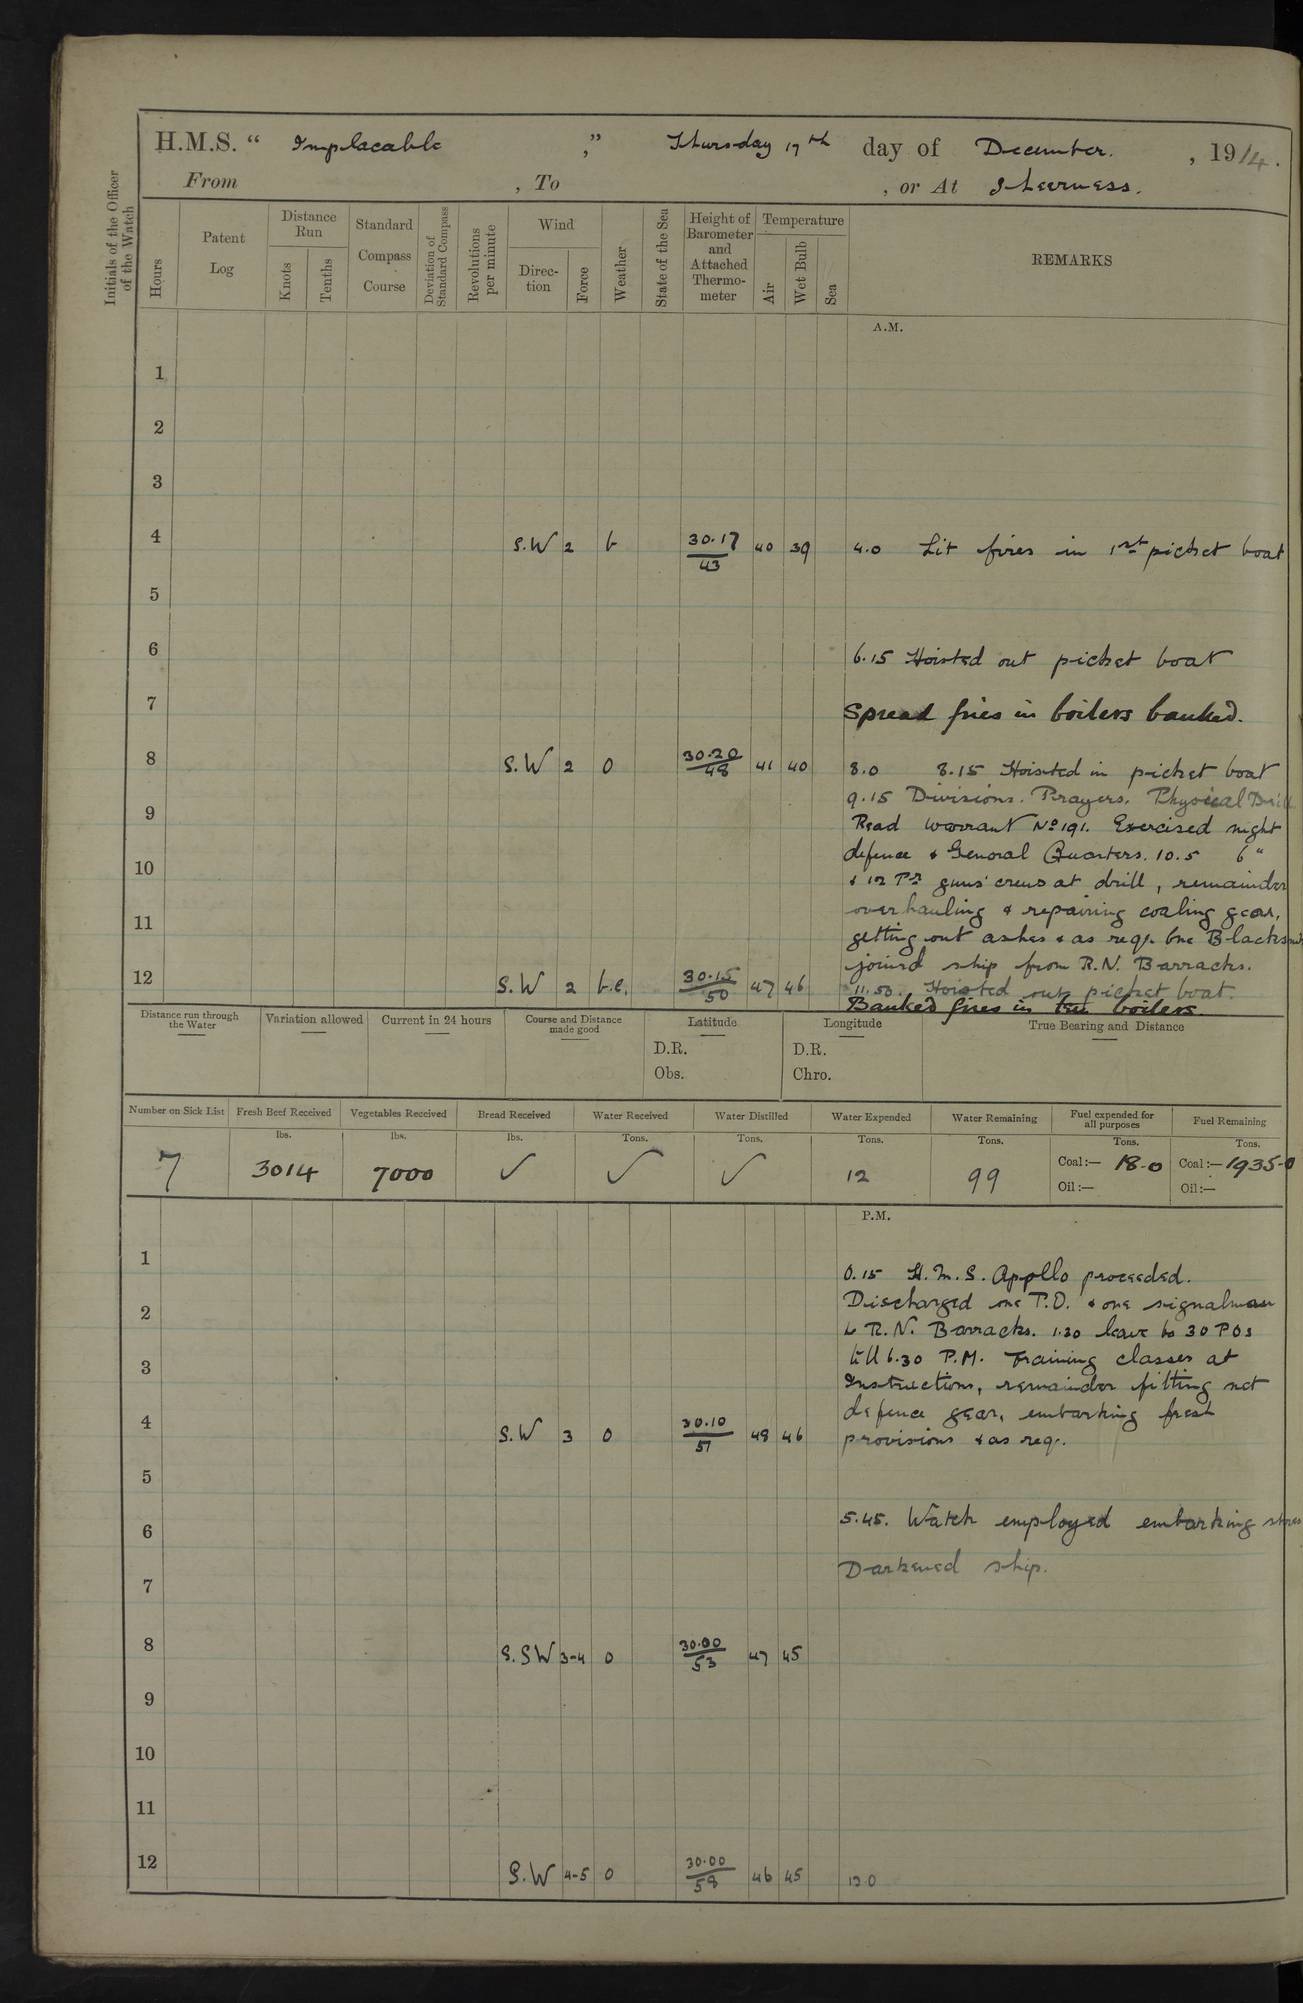 H.M.S. “ Implacable ,” Thursday 17th day of December. , 1914.
From , To , or At Sheerness.
Initials of the Officer of the Watch
Hours
Patent Log
Distance Run
Knots
Tenths
Standard Compass Course
Deviation of Standard Compass
Revolutions per minute
Wind
Direc-tion
Force
Weather
State of the Sea
Height of Barometer and Attached Thermo-meter
Temperature
Air
Wet Bulb
Sea
REMARKS
A.M.
1
2
3
4 S.W 2 b 30.17/43 40 39 4.0 Lit fires in 1st picket boat
5
6 6.15 Hoisted out picket boat
7 Spread fires in boilers banked.
8 S.W 2 0 30.20/48 41 40 8.0 8.15 Hoisted in picket boat
9.15 Divisions. Prayers. Physical Drill
9 Read Warrant No 191. Exercised night
defence & General Quarters. 10.5 6"
10 & 12 Pr guns' crews at drill, remainder
overhauling & repairing coaling gear,
11 getting out ashes & as req. One Blacksm
joined ship from R.N. Barracks.
12 S.W 2 b.c. 30.15/50 47 46 11.50. Hoisted out picket boat.
Banked fires in boilers.
Distance run through the Water
Variation allowed
Current in 24 hours
Course and Distance made good
Latitude
D.R.
Obs.
Longitude
D.R.
Chro.
True Bearing and Distance
Number on Sick List Fresh Beef Received Vegetables Received Bread Received Water Received Water Distilled Water Expended Water Remaining Fuel expended for all purposes Fuel Remaining
lbs. lbs. lbs. Tons. Tons. Tons. Tons. Tons. Tons.
7 3014 7000 ✓ ✓ ✓ 12 99 Coal:— 18-0 Coal:—1935-0
Oil:— Oil:—
P.M.
1 0.15 H.M.S. Apollo proceeded.
Discharged one P.O. & one signalman
2 to R.N. Barracks. 1.30 leave to 30 POs
3 till 6.30 P.M. Training classes at
Instructions, remainder fitting net
4 defence gear, embarking fresh
S.W 3 0 30.10/51 48 46 provisions & as req.
5
6 5.45. Watch employed embarking stores
Darkened ship.
7
8 S.SW 3-4 0 30.00/53 47 45
9
10
11
12 S.W 4-5 0 30.00/58 46 45 12.0